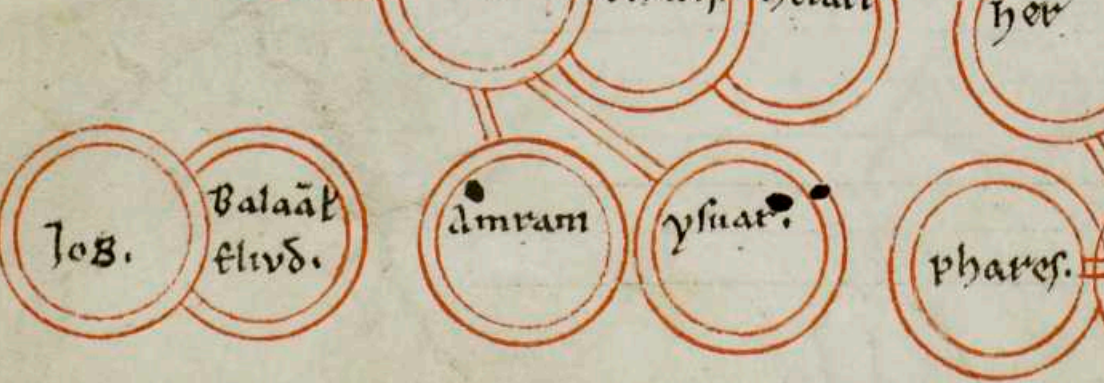 her
Job.
Balaãk
Eliud.
Amram
ysuar.
phares.